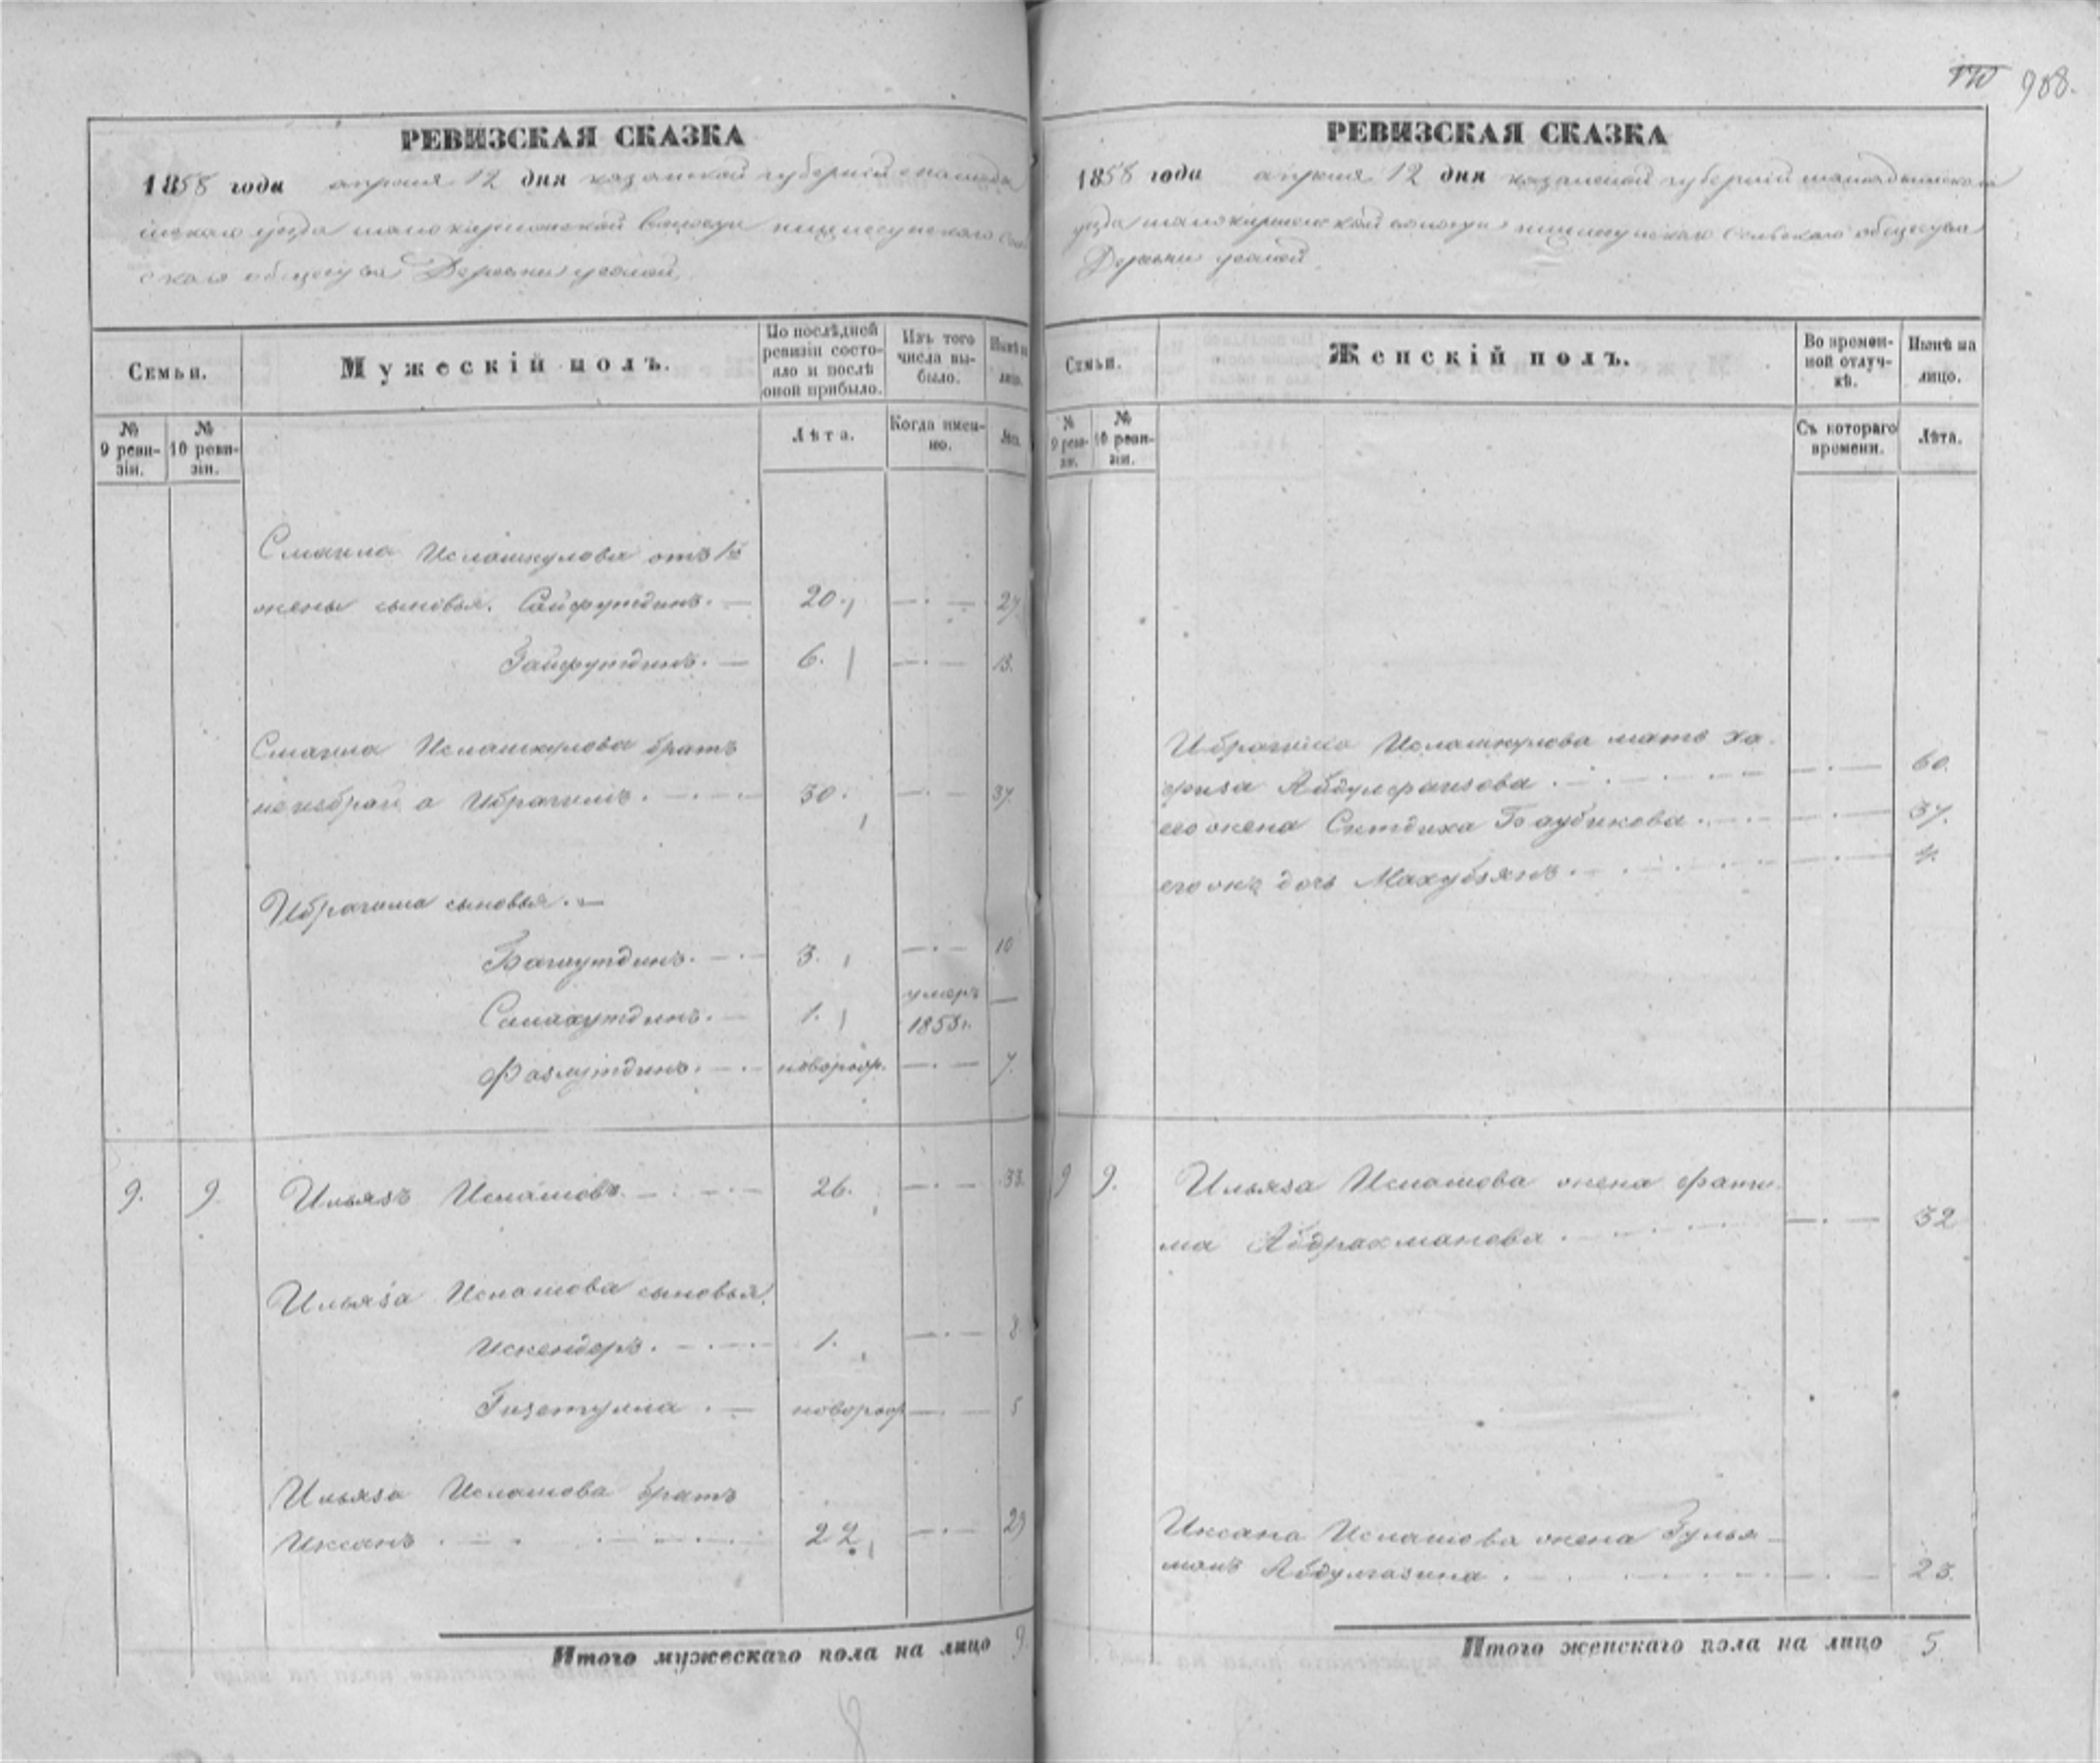 988.
РЕВИЗСКАЯ СКАЗКА
1858 года апреля 12 дня казанской губернии
уезда волости
общества Деревни
Семьи.
Мужескій полъ.
По послѣдней ревизіи состояло и послѣ оной прибыло.
Изъ того числа выбыло.
Нынѣ на лицо.
№ 9 ревизіи.
№ 10 ревизіи.
Лѣта.
Когда именно.
Лѣта.
Смагила Ислашкулова отъ 1й
жены сыновья. Сайфутдинъ. — 20. — · — 27
Зайфутдинъ. — 6. — · — 13.
Смагила Ислашкулова братъ
Ибрагимъ. 30. — · — 37.
Ибрагима сыновья. —
Багаутдинъ. 3. — · — 10
Салахутдинъ. — 1. умеръ 1853г. —
Фазлутдинъ. новорож. — · — 7.
9. 9. Ильязъ Исламовъ. 26. — · — 33.
Ильяза Исламова сыновья.
Искендеръ. 1. — · — 8
Гизетулла. — новорож — · — 5
Ильяза Исламова братъ
Иксанъ 22. — · — 29
Итого мужескаго пола на лицо 9.
РЕВИЗСКАЯ СКАЗКА
1858 года апреля 12 дня казанской губерніи
уезда волости сельскаго общества
Деревни
Семьи.
Женскій полъ.
Во временной отлучкѣ.
Нынѣ на лицо.
№ 9 ревизіи.
№ 10 ревизіи.
Съ котораго времени.
Лѣта.
Ибрагима Ислашкулова мать Ха-
физа Абдулфаизова — · — 60.
его жена Ситдика Баубикова. — · — 37.
ихъ дочь Махубзянъ. — · —
9 9. Ильяза Исламова жена Фати-
ма Абдрахманова. — · — 32
Иксана Исламова жена Зулья-
манъ Абдулгазина. — · — 23.
Итого женскаго пола на лицо 5.